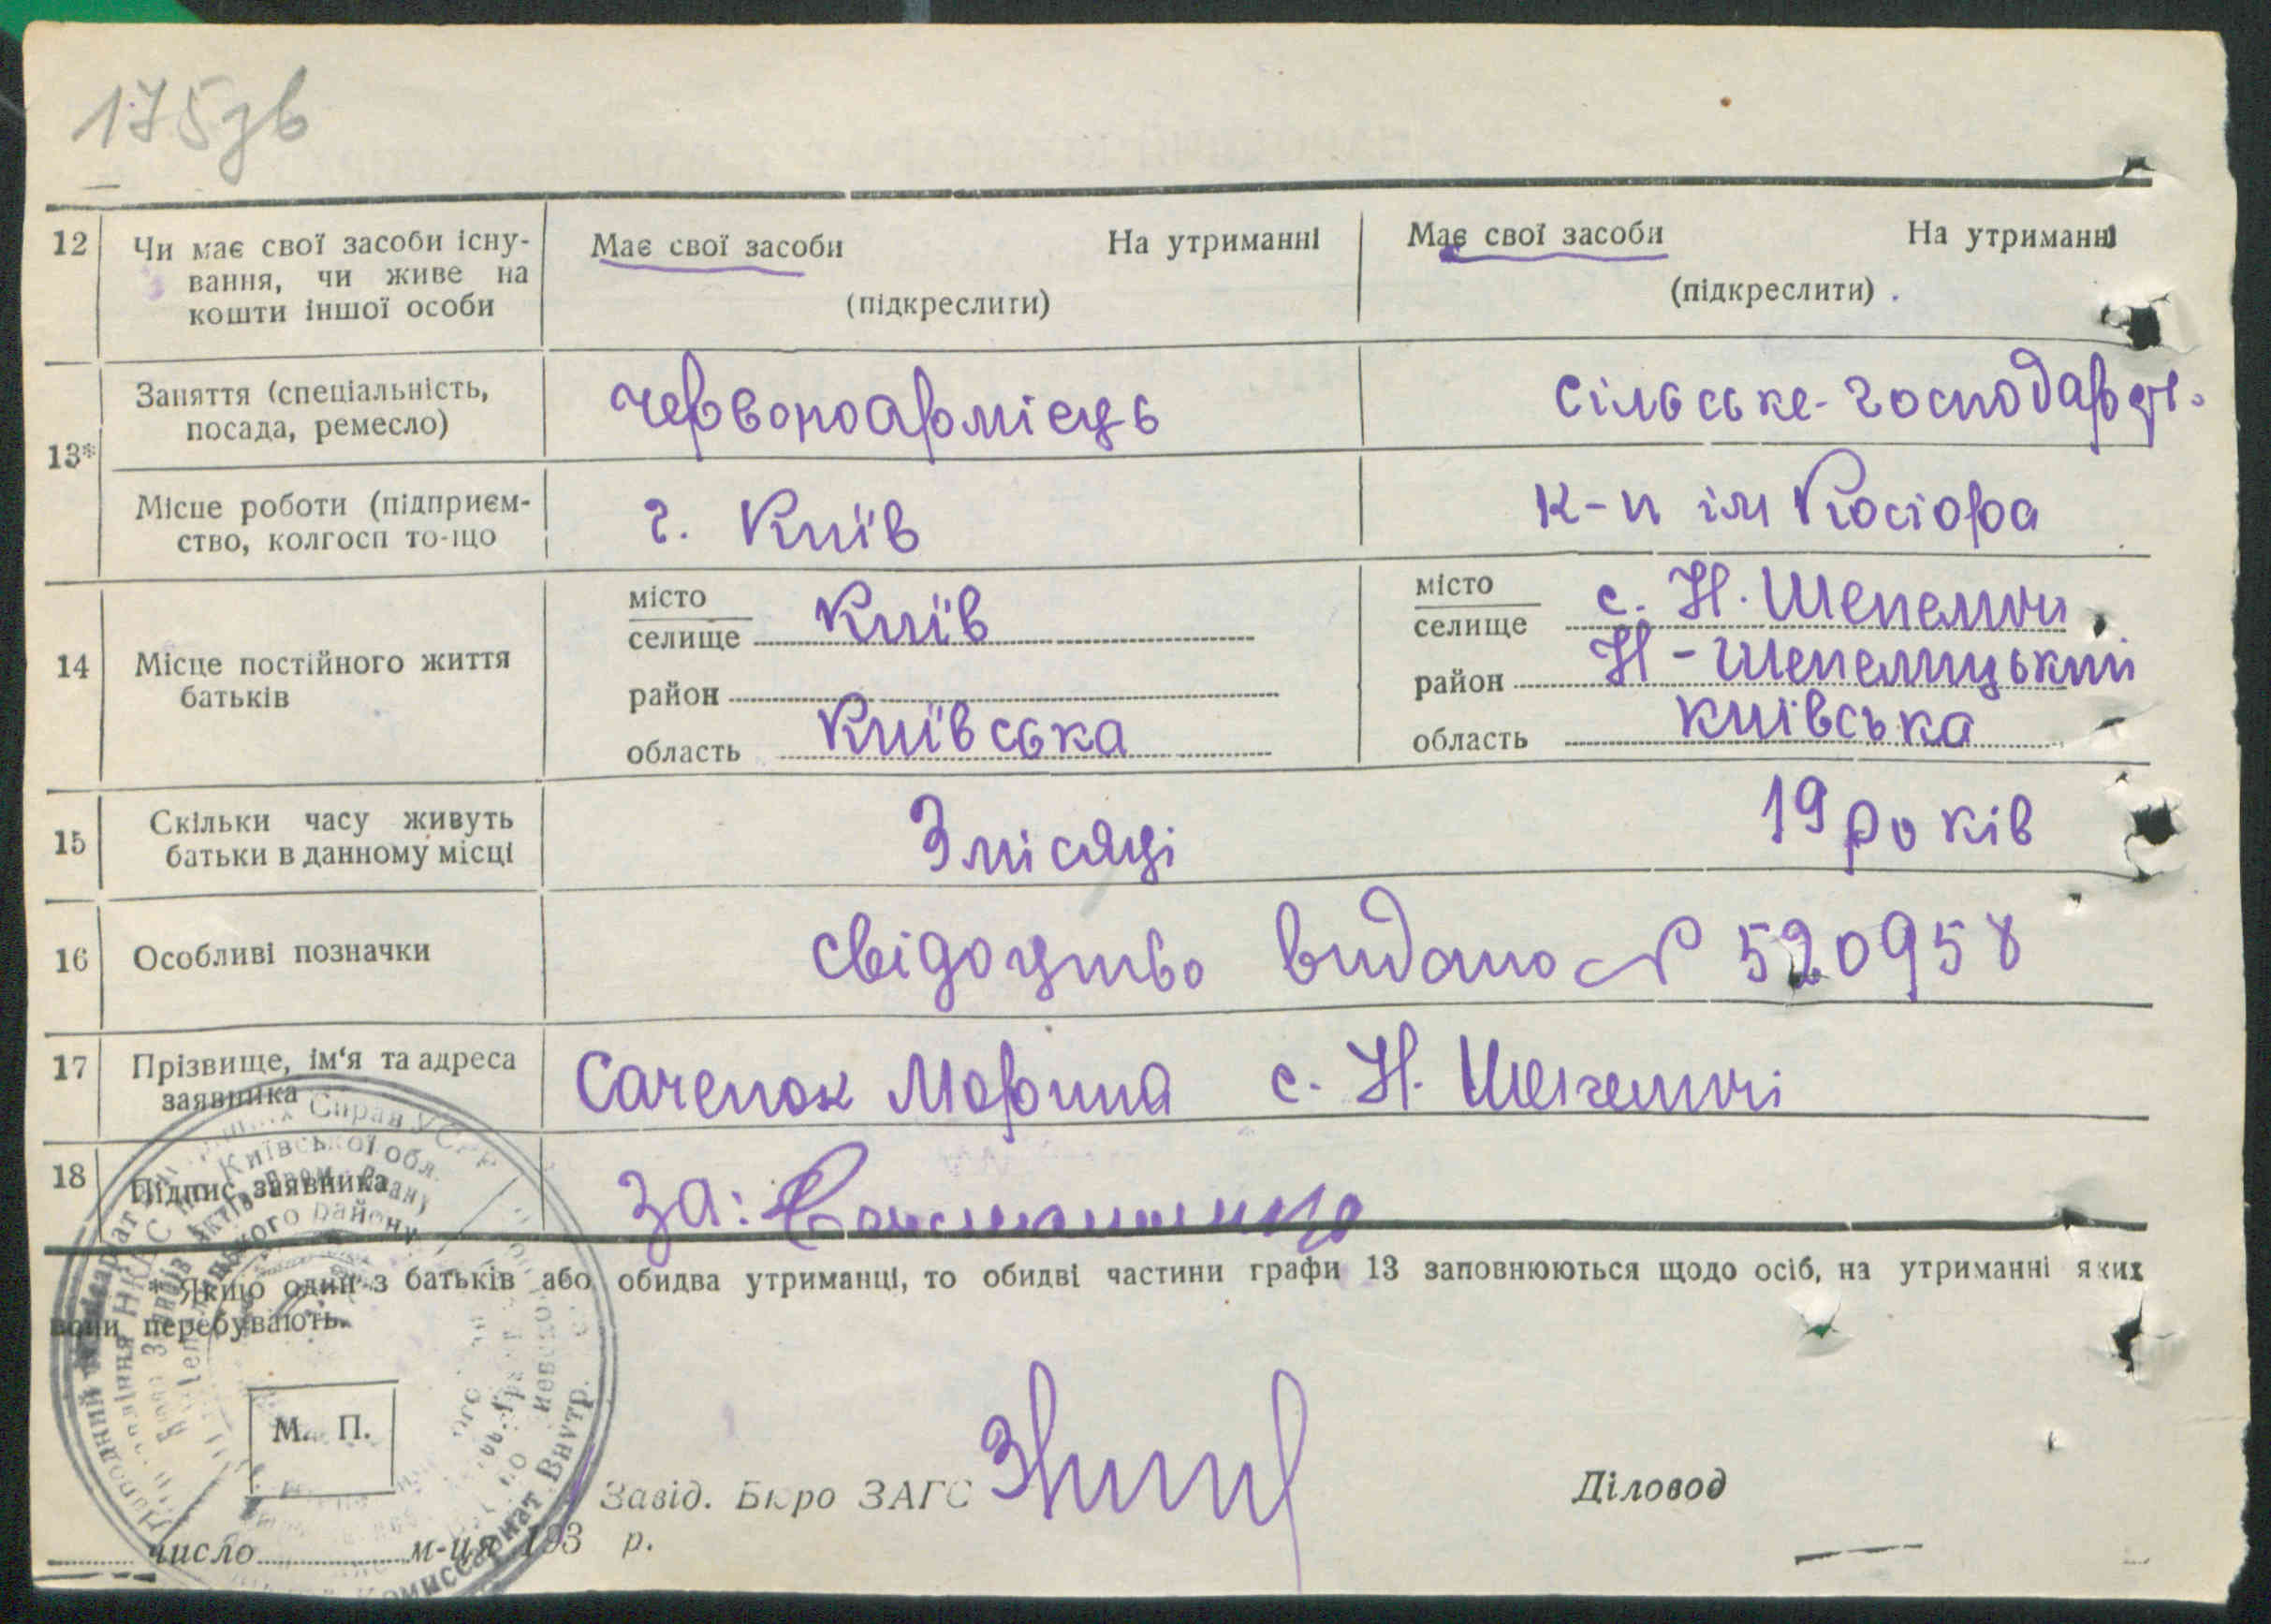 175зв
12 Чи має свої засоби існу- Має свої засоби На утриманні Має свої засоби На утриманні
вання, чи живе на
кошти іншої особи (підкреслити) (підкреслити)
13*
Заняття (спеціальність, червоноармієць сільське-господар
посада, ремесло)
Місце роботи (підприєм- г. Київ к-п ім Косіора
ство, колгосп то-що
14 Місце постійного життя
батьків
місто
селище Київ
район
область Київська
місто
селище с. Н. Шепеличи
район Н-Шепелицький
область київська
15 Скільки часу живуть 3 місяці 19 років
батьки в данному місці
16 Особливі позначки свідоцтво видано № 520958
17 Прізвище, ім'я та адреса Саченок Марина с. Н. Шепеличі
заявника
18 Підпис заявника за:
* Якщо один з батьків або обидва утриманці, то обидві частини графи 13 заповнюються щодо осіб, на утриманні яких
вони перебувають.
М. П.
Завід. Бюро ЗАГС Діловод
число м-ця 193 р.
Справ УСРР
Київської обл.
району
Внутр.